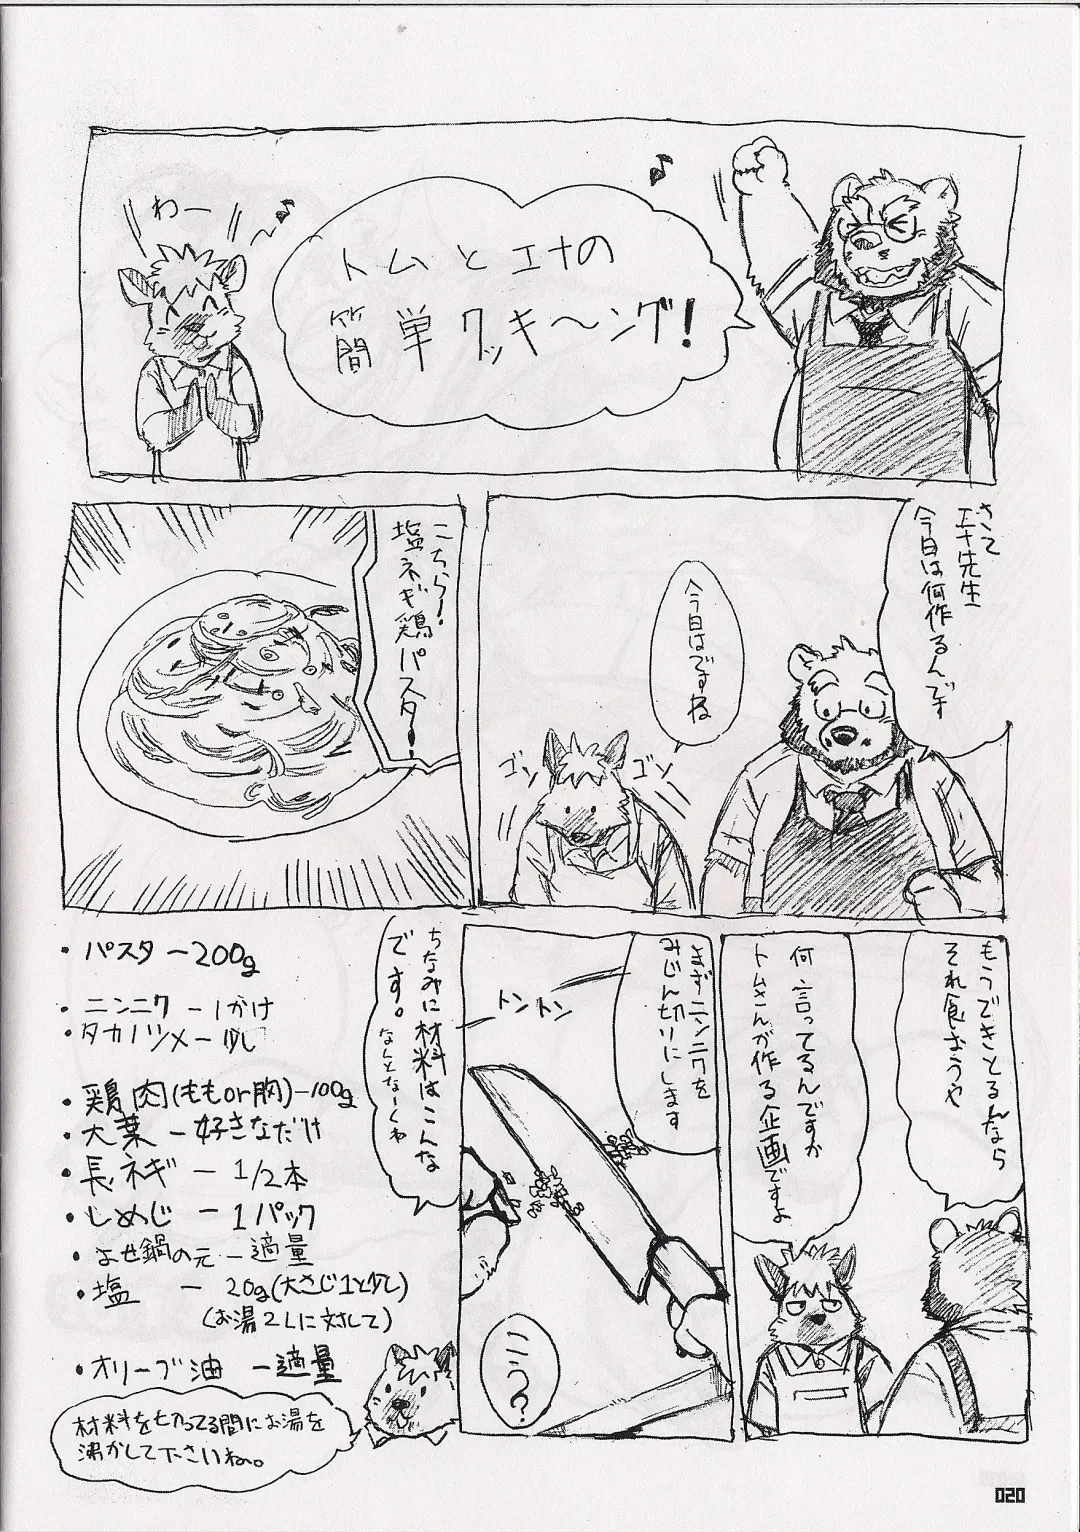 わー
トムとエナの
簡単クッキ〜ング!
さて
エナ先生
今日は何作るんです
今日はですね
ゴソ
ゴソ
こちら!
塩ネギ鶏パスター!
もうできとるんなら
それ食おうや
何言ってるんですか
トムさんが作る企画ですよ
まずニンニクを
みじん切りにします
トントン
こう?
ちなみに材料はこんな
です。
なんとなーくね
・パスター200g
・ニンニクー1かけ
・タカノツメー少し
・鶏肉(ももor胸)ー100g
・大葉ー好きなだけ
・長ネギー1/2本
・しめじー1パック
・よせ鍋の元ー適量
・塩ー20g(大さじ1と少し)
(お湯2Lに対して)
・オリーブ油ー適量
材料を切ってる間にお湯を
沸かして下さいね。
020